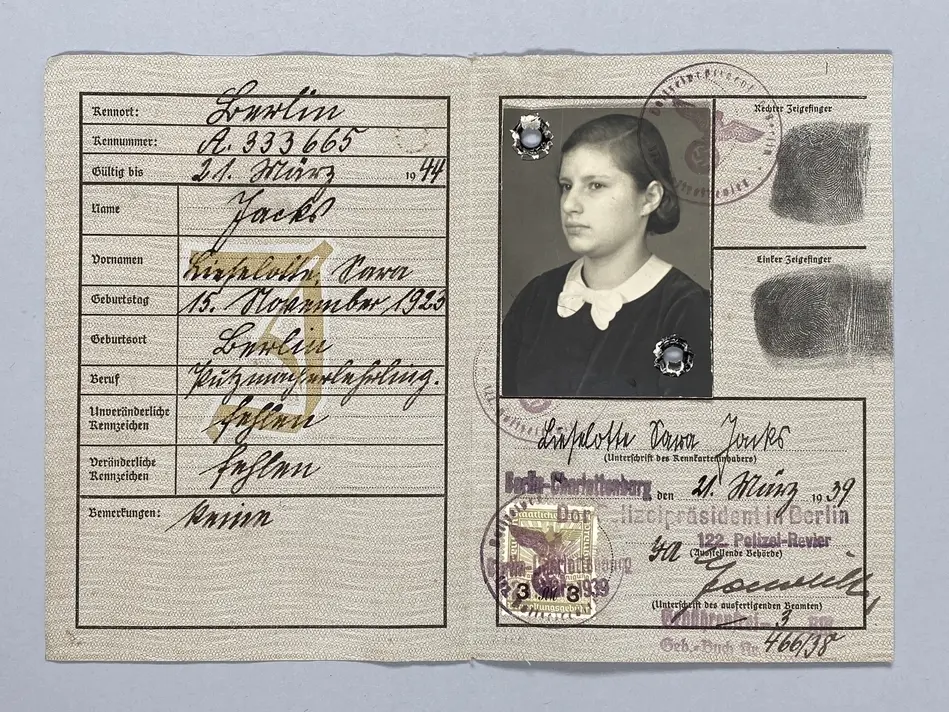 Kennort: Berlin
Kennummer: A. 333665
Gültig bis 21. März 1944
Name Jacks
J
Vornamen Lieselotte, Sara
Geburtstag 15. November 1923
Geburtsort Berlin
Beruf Putzmacherlehrling.
Unveränderliche Kennzeichen fehlen
Veränderliche Kennzeichen fehlen
Bemerkungen: Keine
Rechter Zeigefinger
Linker Zeigefinger
Lieselotte Sara Jacks
(Unterschrift des Kennkarteninhabers)
Berlin-Charlottenburg den 21. März 1939
Der Polizeipräsident in Berlin
122. Polizei-Revier
(Ausstellende Behörde)
Berlin-Charlottenburg
3 RM 3
1939
(Unterschrift des ausfertigenden Beamten)
3 RM
Geb.-Buch Nr. 466/38